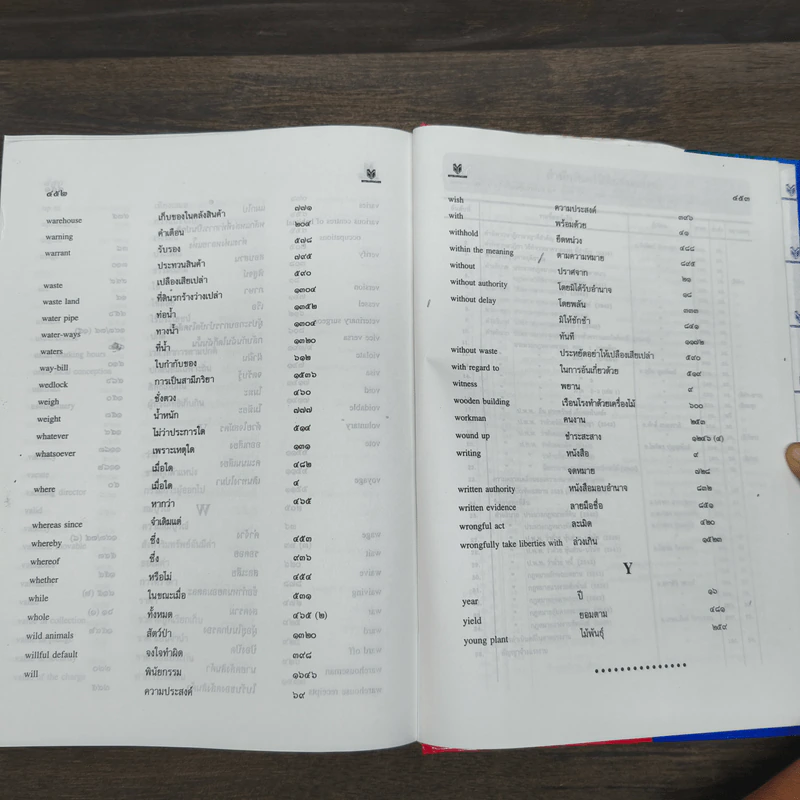 ๔๕๒
warehouse เก็บของในคลังสินค้า ๗๗๑
warning คำเตือน ๒๐๔
warrant รับรอง ๕๗๘
ประทวนสินค้า ๗๙๕
waste เปลืองเสียเปล่า ๕๙๐
waste land ที่ดินรกร้างว่างเปล่า ๑๓๐๔
water pipe ท่อน้ำ ๑๓๕๒
water-ways ทางน้ำ ๑๓๐๔
waters ที่น้ำ ๑๓๒๐
way-bill ใบกำกับของ ๖๑๒
wedlock การเป็นสามีภริยา ๑๕๓๖
weigh ชั่งตวง ๔๖๐
weight น้ำหนัก ๗๗๗
whatever ไม่ว่าประการใด ๕๑๔
whatsoever เพราะเหตุใด ๑๓๑
เมื่อใด ๔๘๒
where เมื่อใด ๔
หากว่า ๔๖๕
whereas since จำเดิมแต่
whereby ซึ่ง ๔๕๓
whereof ซึ่ง ๙๓๖
whether หรือไม่ ๔๕๔
while ในขณะเมื่อ ๕๓๑
whole ทั้งหมด ๔๖๕ (๒)
wild animals สัตว์ป่า ๑๓๒๐
willful default จงใจทำผิด ๓๙๘
will พินัยกรรม ๑๖๔๖
ความประสงค์ ๖๙
๔๕๓
wish ความประสงค์ ๓๙๖
with พร้อมด้วย ๔๑
withhold ยึดหน่วง ๔๘๘
within the meaning ตามความหมาย ๘๙๕
without ปราศจาก ๒๑
without authority โดยมิได้รับอำนาจ ๑๘
without delay โดยพลัน ๓๓๓
มิให้ชักช้า ๘๔๑
ทันที ๑๑๘๒
without waste ประหยัดอย่าให้เปลืองเสียเปล่า ๕๙๐
with regard to ในการอันเกี่ยวด้วย ๕๑๙
witness พยาน ๙
wooden building เรือนโรงทำด้วยเครื่องไม้ ๖๐๐
workman คนงาน ๒๕๓
wound up ชำระสะสาง ๑๒๔๖ (๔)
writing หนังสือ ๙
จดหมาย ๗๒๘
written authority หนังสือมอบอำนาจ ๘๓๒
written evidence ลายมือชื่อ ๘๕๑
wrongful act ละเมิด ๔๒๐
wrongfully take liberties with ล่วงเกิน ๑๕๒๓
Y
year ปี ๑๖
yield ยอมตาม ๔๘๑
young plant ไม้พันธุ์ ๒๕๙